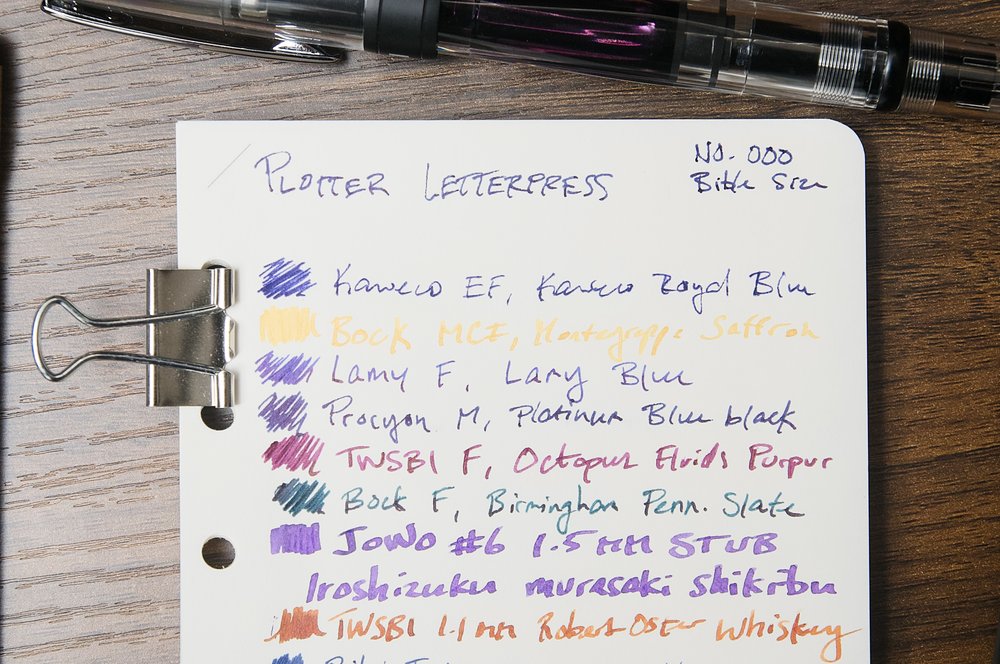 PLOTTER LETTERPRESS
No. 000
Bible Size
Kaweco EF, Kaweco Royal Blue
Bock MCI, Montegrappa Saffron
Lamy F, Lamy Blue
Procyon M, Platinum Blue black
TWSBI F, Octopus Fluids Purpur
Bock F, Birmingham Penn. Slate
JoWo #6 1.5 MM STUB
Iroshizuku murasaki shikibu
TWSBI 1.1 MM Robert Oster Whiskey